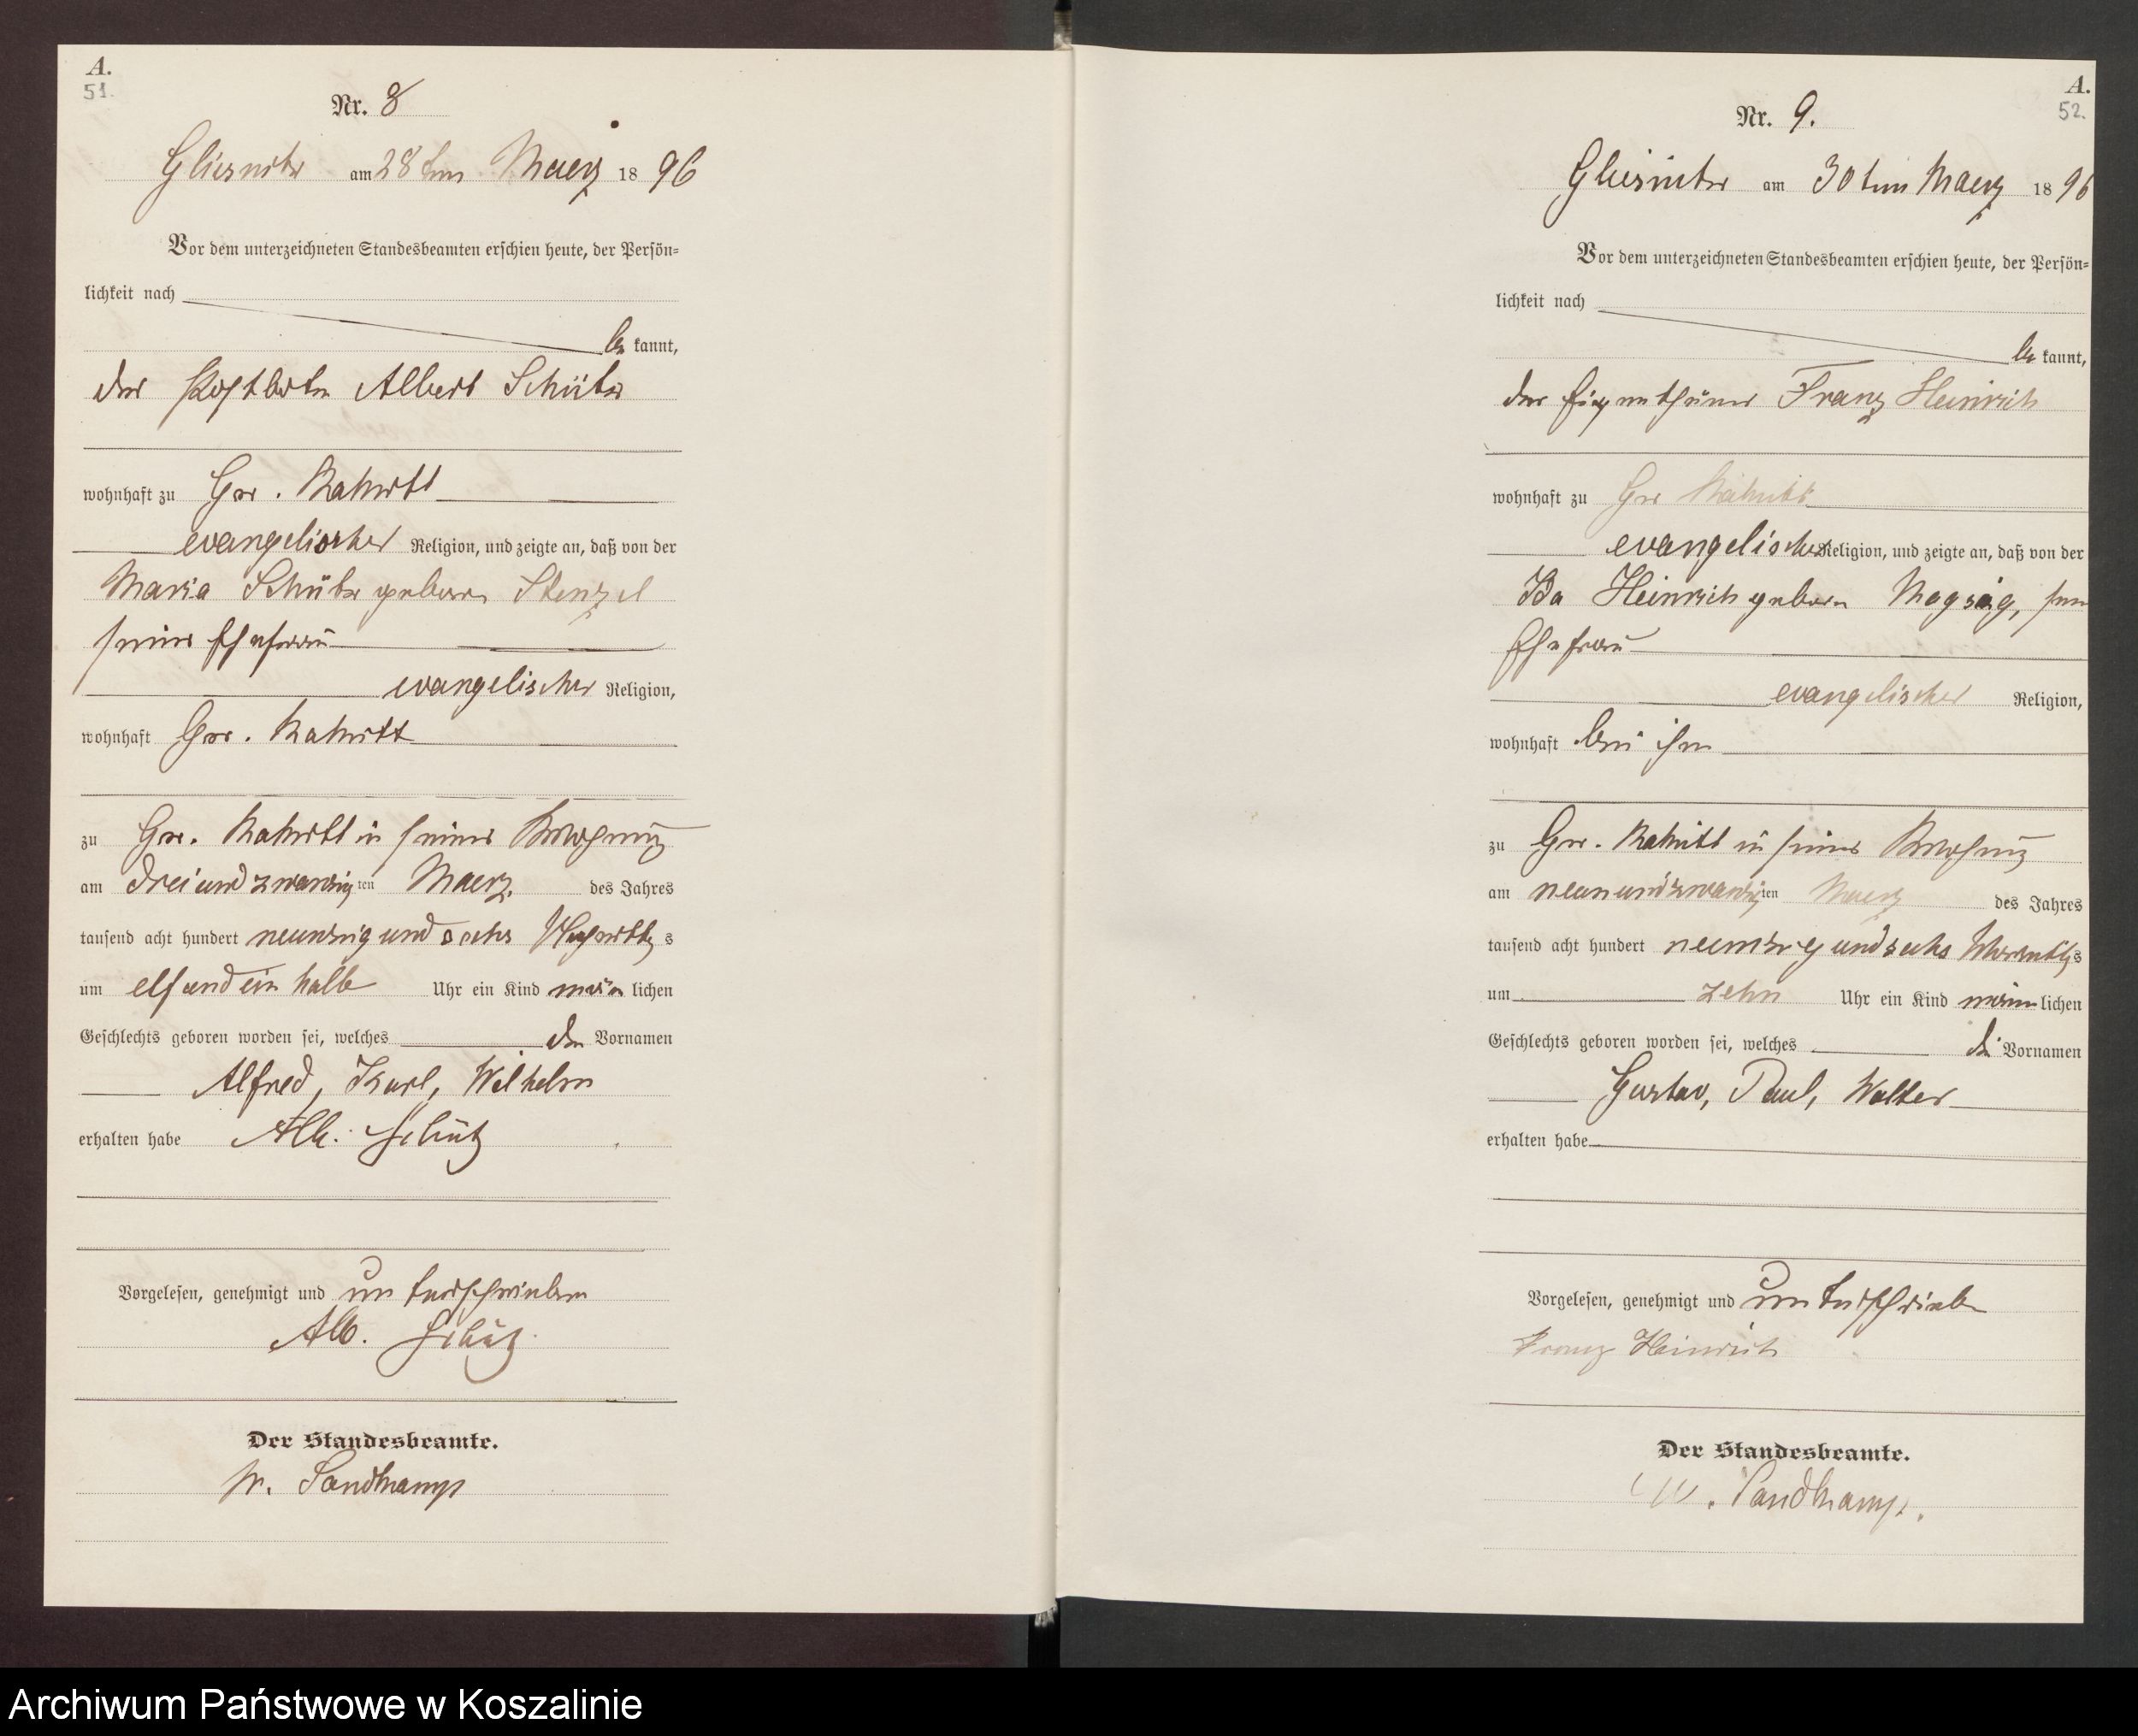 A.
51.
Nr. 8
Gliesnitz am 28ten Maerz 1896
Vor dem unterzeichneten Standesbeamten erschien heute, der Persön=
lichkeit nach
be kannt,
der Postbote Albert Schütz
wohnhaft zu Gr. Rakitt
evangelischer Religion, und zeigte an, daß von der
Maria Schütz geboren Stenzel
seiner Ehefrau
evangelischer Religion,
wohnhaft Gr. Rakitt
zu Gr. Rakitt in seiner Wohnung
am dreiundzwanzig ten Maerz des Jahres
tausend acht hundert neunzig und sechs Nachmittags
um elf und ein halb Uhr ein Kind männ lichen
Geschlechts geboren worden sei, welches den Vornamen
Alfred, Karl, Wilhelm
erhalten habe Alb. Schütz
Vorgelesen, genehmigt und unterschrieben
Alb. Schütz
Der Standesbeamte.
W. Sandkamp
A.
52.
Nr. 9.
Gliesnitz am 30ten Maerz 1896
Vor dem unterzeichneten Standesbeamten erschien heute, der Persön=
lichkeit nach
be kannt,
der Eigenthümer Franz Heinrich
wohnhaft zu Gr Rakitt
evangelischer Religion, und zeigte an, daß von der
Ida Heinrich geboren
Ehefrau
evangelischer Religion,
wohnhaft bei ihm
zu Gr. Rakitt in seiner Wohnung
am neunundzwanzig ten Maerz des Jahres
tausend acht hundert neunzig und sechs Vormittags
um zehn Uhr ein Kind männ lichen
Geschlechts geboren worden sei, welches die Vornamen
Gustav, Paul, Walter
erhalten habe
Vorgelesen, genehmigt und unterschrieben
Franz Heinrich
Der Standesbeamte.
W. Sandkamp.
Archiwum Państwowe w Koszalinie